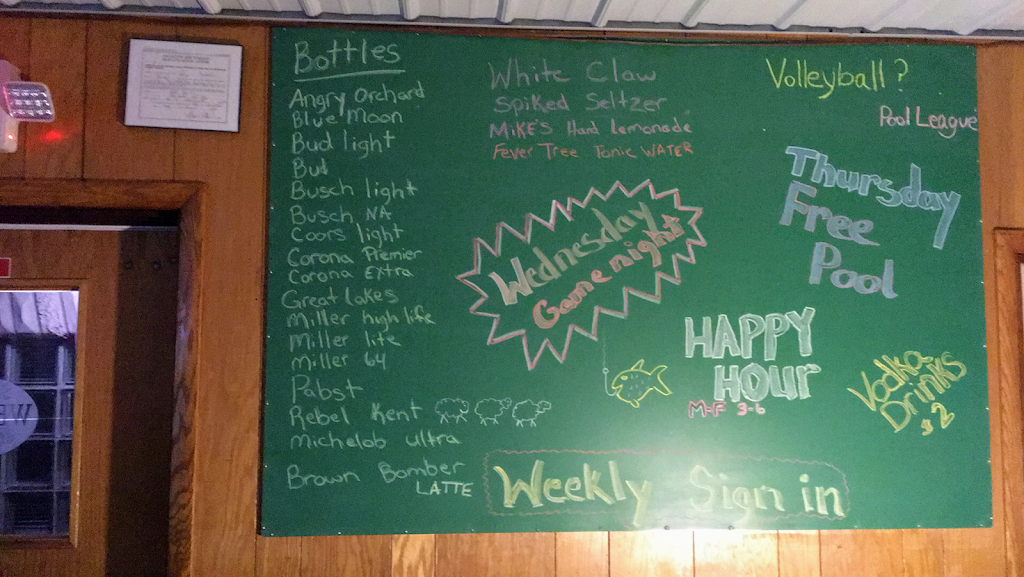 Bottles
Angry Orchard
Blue Moon
Bud light
Bud
Busch light
Busch NA
Coors light
Corona Premier
Corona Extra
Great lakes
Miller high life
Miller lite
Miller 64
Pabst
Rebel Kent
Michelob ultra
Brown Bomber
LATTE
White Claw
Spiked Seltzer
MiKE'S Hard lemonade
Fever Tree Tonic WATER
Wednesday
Game night
Volleyball?
Pool League
Thursday
Free
Pool
HAPPY
HOUR
M-F 3-6
Vodka
Drinks
$2
Weekly Sign in